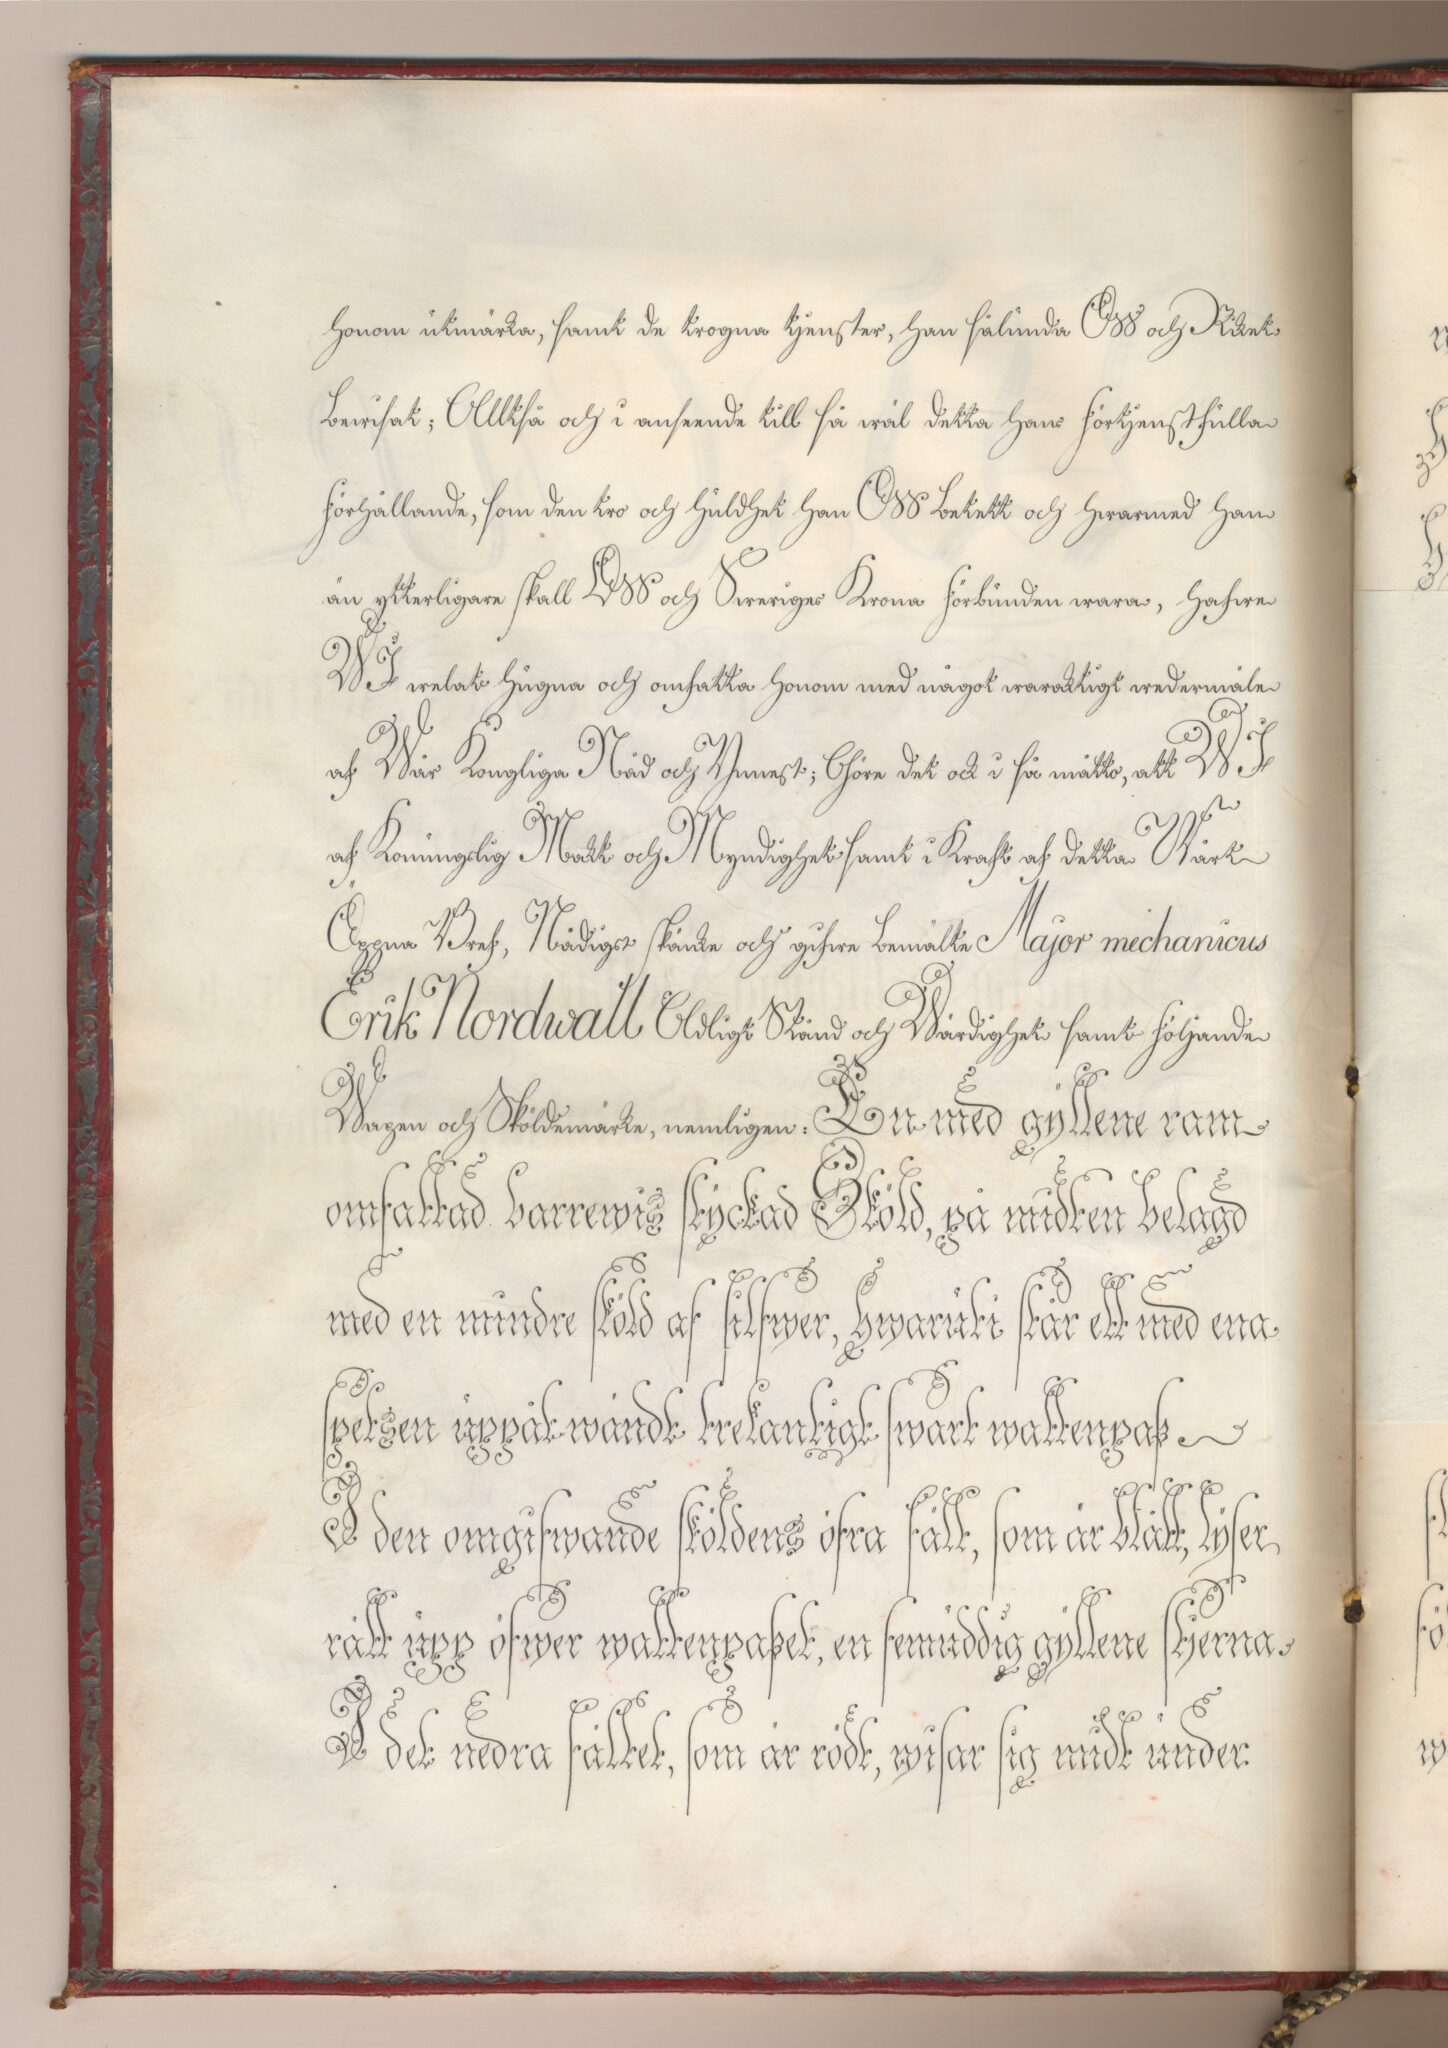 honom utmärka, samt de trogna tjenster, han sålunda Oss och Riket
bewisat; Alltså och i anseende till så wäl detta hans förtjenstfulla
förhållande, som den tro och huldhet han Oss betett och hwarmed han
än ytterligare skall Oss och Sweriges Krona förbunden wara, hafwe
WJ welat hugna och omfatta honom med något waracktigt wedermäle
af Wår Kongliga Nåd och Ynnest; Göre det ock i så måtto, att WJ
af Konungslig Mackt och Myndighet samt i Kraft af detta Wårt
Öppna Bref, Nådigst skänke och gifwe bemälte Major mechanicus
Erik Nordwall Adligt Stånd och Wärdighet samt följande
Wapen och Sköldemärke, nemligen: En med gyllene ram
omfattad barrewis styckad Sköld, på midten belagd
med en mindre sköld af silfwer, hwaruti står ett med ena
spetsen uppåt wändt trekantigt swart wattenpaß
I den omgifwande sköldens öfra fält, som är blått, lyser
rätt upp öfwer wattenpaßet, en femuddig gyllene stjerna.
I det nedra fältet, som är rödt, wisar sig midt under